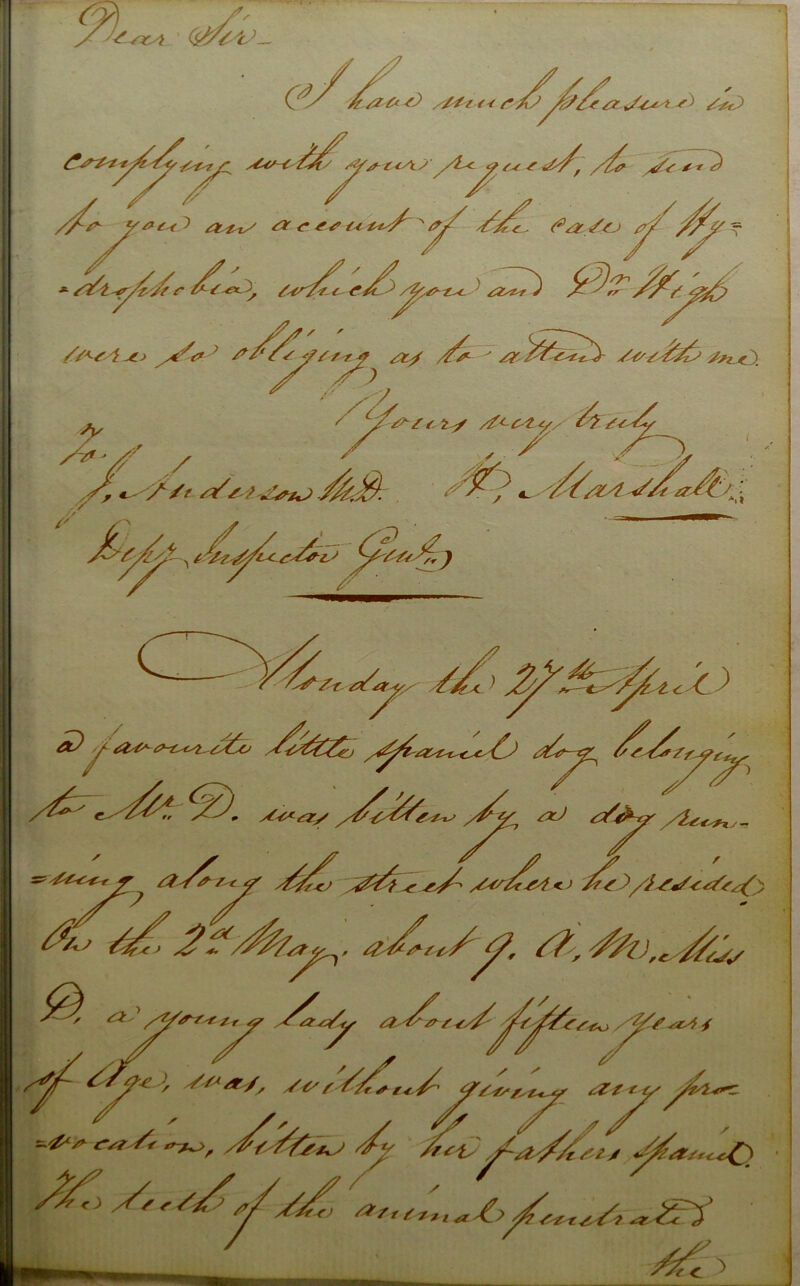 Dear Sir -
I have much pleasure in
complying with your request, to send
to you an account of the case of Hy=
=drophobia, which you and Dr. High
were so obliging as to attend with me.
Yours very truly
To
J. Anderson M.D. H. Marshall
Depy Inspector Genl.
Monday the 27th April
a favourite little spaniel dog belonging
to Mr. D. was bitten by a dog run-
=ning along the street where he resided.
On the 2d May, about 9. A. M. Miss
D. a young lady about fifteen years
of Age, was, without giving any pro-
=vocation, bitten by her fathers spaniel.
The teeth of the animal penetrated
the